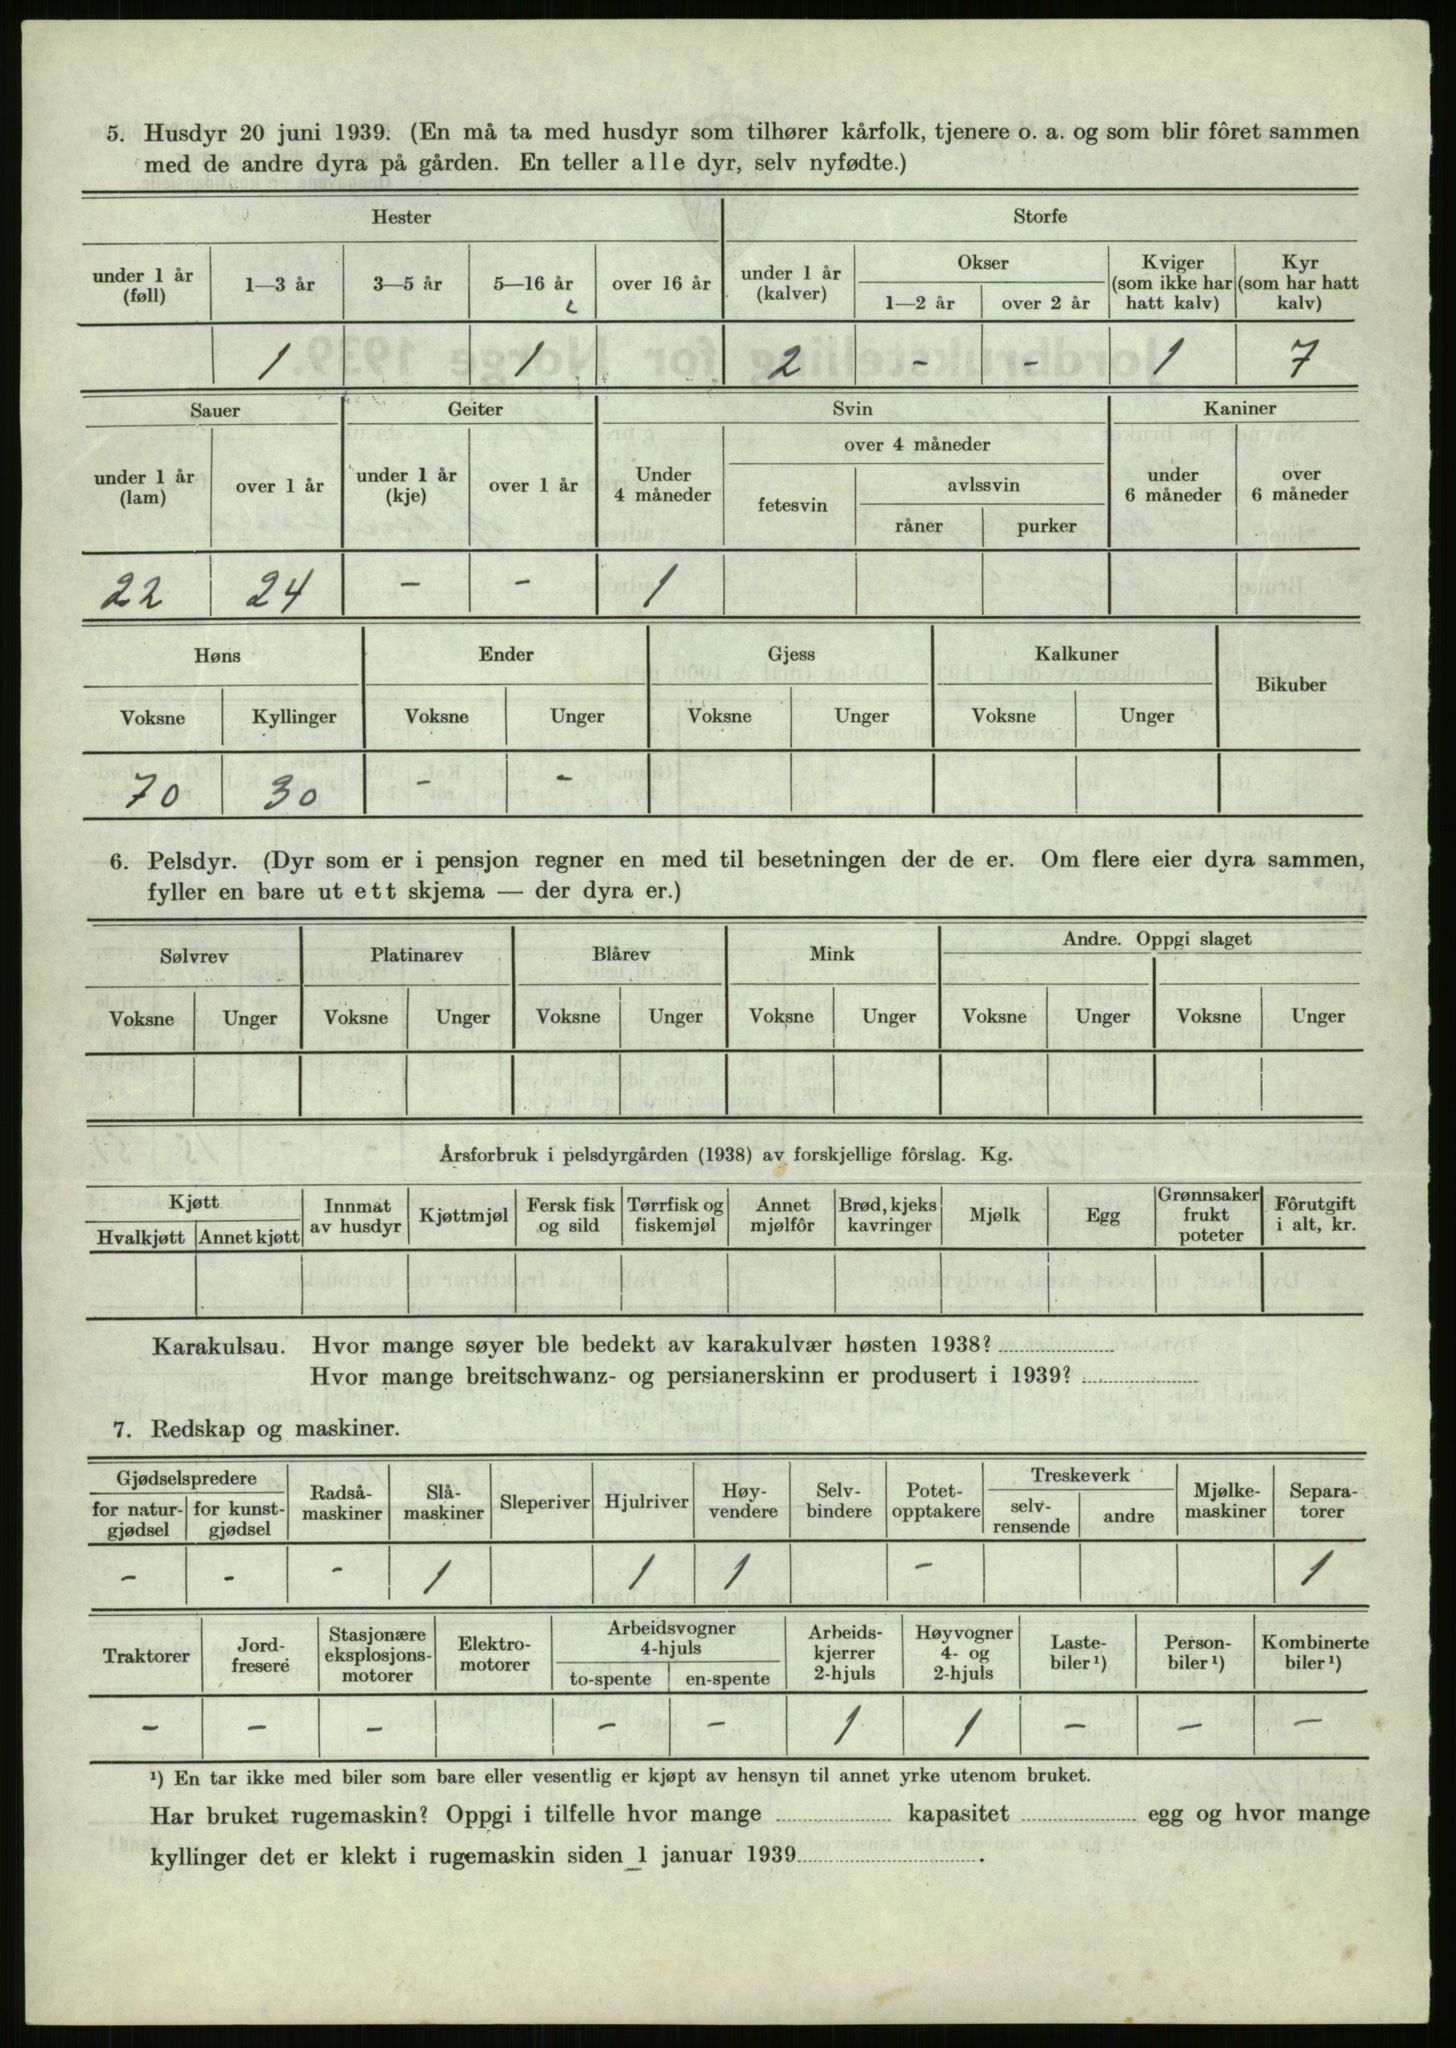 5. Husdyr 20 juni 1939. (En må ta med husdyr som tilhører kårfolk, tjenere o. a. og som blir fôret sammen
med de andre dyra på gården. En teller alle dyr, selv nyfødte.)
Hester Storfe
under 1 år (føll) 1—3 år 3—5 år 5—16 år over 16 år under 1 år (kalver) Okser 1—2 år over 2 år Kviger (som ikke har hatt kalv) Kyr (som har hatt kalv)
1 1 2 - - 1 7
Sauer Geiter Svin Kaniner
under 1 år (lam) over 1 år under 1 år (kje) over 1 år Under 4 måneder over 4 måneder fetesvin avlssvin råner purker under 6 måneder over 6 måneder
22 24 - - 1
Høns Ender Gjess Kalkuner Bikuber
Voksne Kyllinger Voksne Unger Voksne Unger Voksne Unger
70 30 - -
6. Pelsdyr. (Dyr som er i pensjon regner en med til besetningen der de er. Om flere eier dyra sammen,
fyller en bare ut ett skjema — der dyra er.)
Sølvrev Platinarev Blårev Mink Andre. Oppgi slaget
Voksne Unger Voksne Unger Voksne Unger Voksne Unger Voksne Unger Voksne Unger
Årsforbruk i pelsdyrgården (1938) av forskjellige fôrslag. Kg.
Kjøtt Hvalkjøtt Annet kjøtt Innmat av husdyr Kjøttmjøl Fersk fisk og sild Tørrfisk og fiskemjøl Annet mjølfôr Brød, kjeks kavringer Mjølk Egg Grønnsaker frukt poteter Fôrutgift i alt, kr.
Karakulsau. Hvor mange søyer ble bedekt av karakulvær høsten 1938?
Hvor mange breitschwanz- og persianerskinn er produsert i 1939?
7. Redskap og maskiner.
Gjødselspredere for natur-gjødsel for kunst-gjødsel Radså-maskiner Slå-maskiner Sleperiver Hjulriver Høy-vendere Selv-bindere Potet-opptakere Treskeverk selv-rensende andre Mjølke-maskiner Separa-torer
- - - 1 1 1 - 1
Traktorer Jord-fresere Stasjonære eksplosjons-motorer Elektro-motorer Arbeidsvogner 4-hjuls to-spente en-spente Arbeids-kjerrer 2-hjuls Høyvogner 4- og 2-hjuls Laste-biler¹) Person-biler¹) Kombinerte biler¹)
- - - - - 1 1 - - -
¹) En tar ikke med biler som bare eller vesentlig er kjøpt av hensyn til annet yrke utenom bruket.
Har bruket rugemaskin? Oppgi i tilfelle hvor mange kapasitet egg og hvor mange
kyllinger det er klekt i rugemaskin siden 1 januar 1939 .